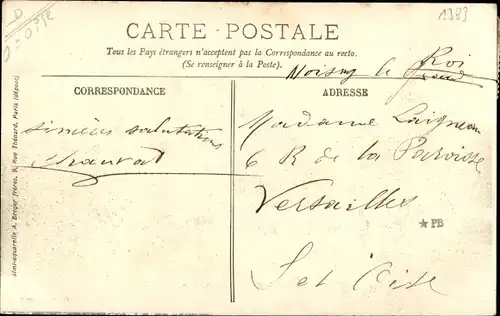 D
O=Oise
1383
CARTE POSTALE
Tous les Pays étrangers n'acceptent pas la Correspondance au recto.
(Se renseigner à la Poste).
Noisy le Roi
CORRESPONDANCE
ADRESSE
Sincères salutations
Madame Laigneau
6 R de la Paroisse
Versailles
★ PB
S et Oise
simi-aquarelle A. Breger frères, 9, Rue Thénard, Paris (déposé)